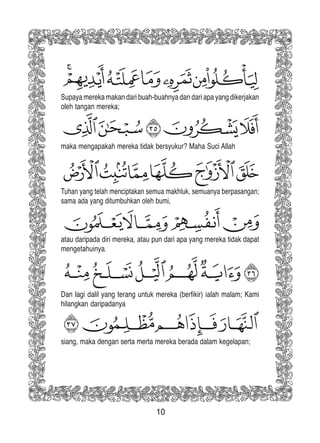 لِيَأْكُلُوا۟ مِن ثَمَرِهِۦ وَمَا عَمِلَتْهُ أَيْدِيهِمْ ۚ
Supaya mereka makan dari buah-buahnya dan dari apa yang dikerjakan
oleh tangan mereka;
أَفَلَا يَشْكُرُونَ ﴿٣٥﴾ سُبْحَـٰنَ ٱلَّذِى
maka mengapakah mereka tidak bersyukur? Maha Suci Allah
خَلَقَ ٱلْأَزْوَٰجَ كُلَّهَا مِمَّا تُنۢبِتُ ٱلْأَرْضُ
Tuhan yang telah menciptakan semua makhluk, semuanya berpasangan;
sama ada yang ditumbuhkan oleh bumi,
وَمِنْ أَنفُسِهِمْ وَمِمَّا لَا يَعْلَمُونَ
atau daripada diri mereka, atau pun dari apa yang mereka tidak dapat
mengetahuinya.
﴿٣٦﴾ وَءَايَةٌ لَّهُمُ ٱلَّيْلُ نَسْلَخُ مِنْهُ
Dan lagi dalil yang terang untuk mereka (berfikir) ialah malam; Kami
hilangkan daripadanya
ٱلنَّهَارَ فَإِذَا هُم مُّظْلِمُونَ ﴿٣٧﴾
siang, maka dengan serta merta mereka berada dalam kegelapan;
10